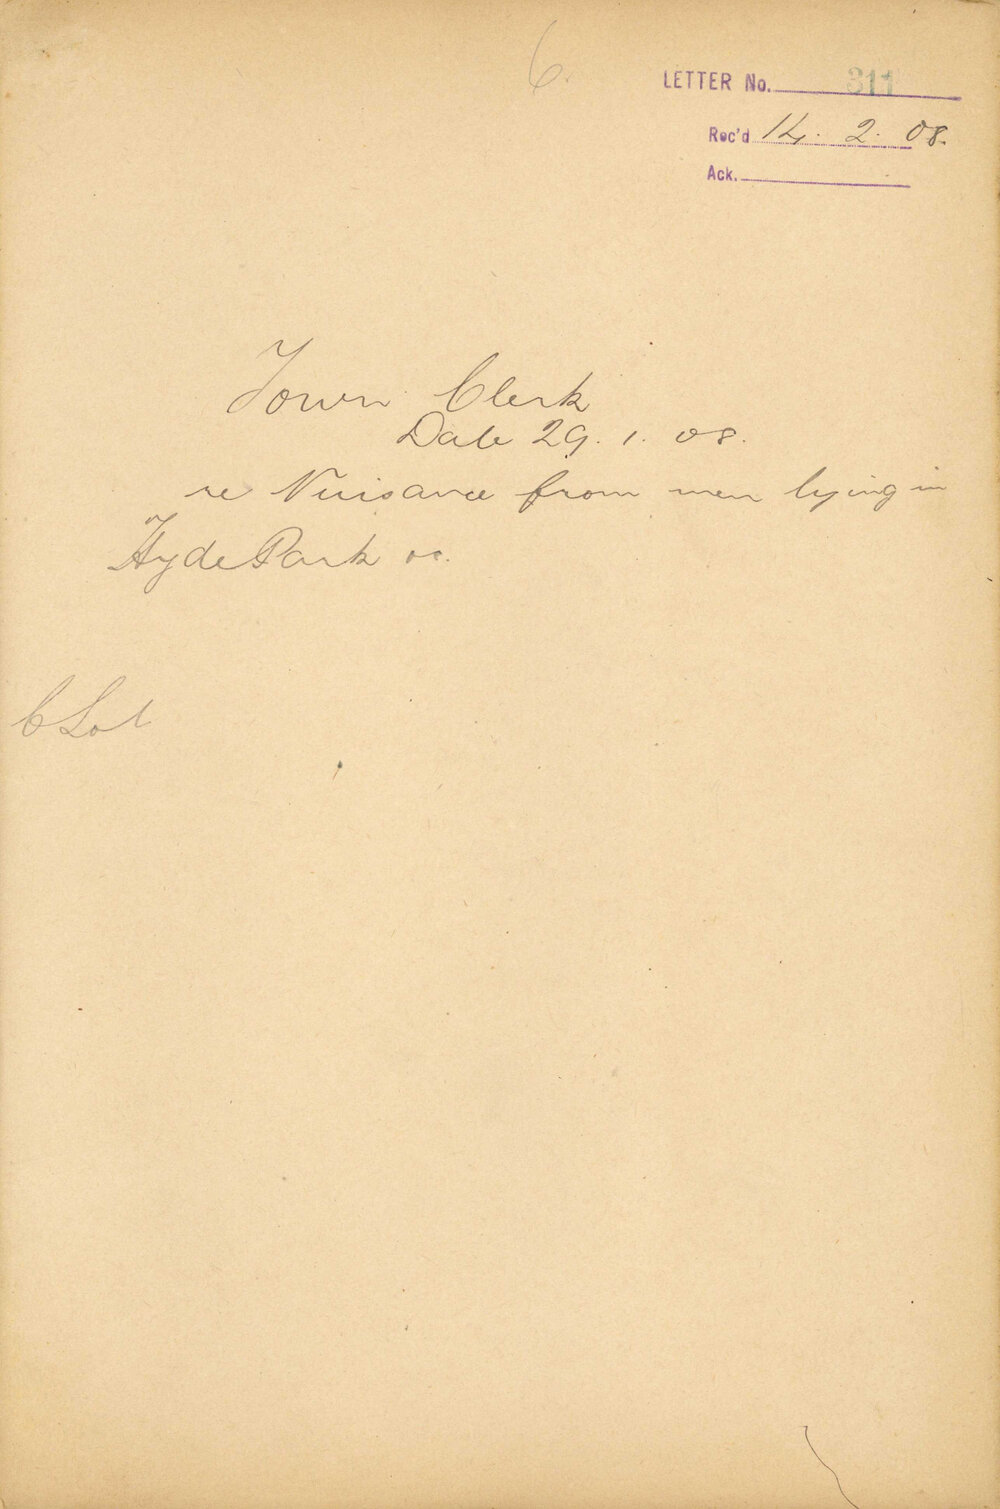 6.
LETTER No. 311
Rec'd 14. 2. 08.
Ack.
Town Clerk
Date 29. 1. 08.
re Nuisance from men lying in
Hyde Park